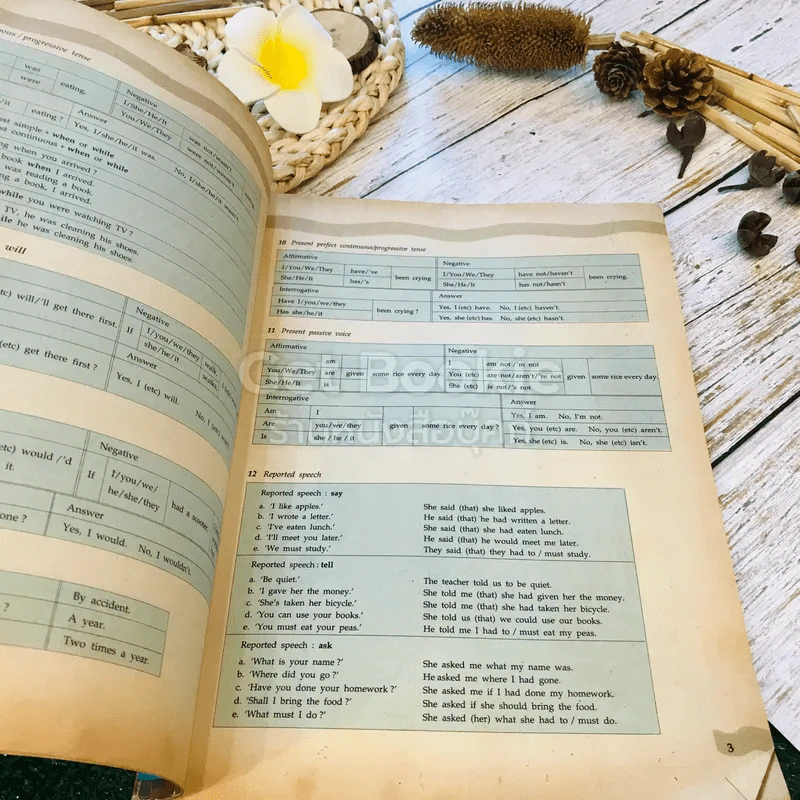 ous/progressive tense
was
were
eating.
Negative
I/She/He/It
You/We/They
was not/wasn't
were not/weren't
/it eating?
Answer
Yes, I/she/he/it was.
No, I/she/he/it wasn't.
st simple + when or while
st continuous + when or while
ng when you arrived?
book when I arrived.
was reading a book.
ng a book, I arrived.
while you were watching TV?
TV, he was cleaning his shoes.
ile he was cleaning his shoes.
will
etc) will/'ll get there first.
(etc) get there first?
Negative
If
I/you/we/they
she/he/it
walk,
Answer
Yes, I (etc) will.
etc) would /'d
it.
Negative
If
I/you/we/
he/she/they
had a scooter,
one?
Answer
Yes, I would. No, I wouldn't.
?
By accident.
A year.
Two times a year.
10 Present perfect continuous/progressive tense
Affirmative
I/You/We/They have/'ve been crying
She/He/It has/'s
Negative
I/You/We/They have not/haven't been crying.
She/He/It has not/hasn't
Interrogative
Have I/you/we/they been crying?
Has she/he/it
Answer
Yes, I (etc) have. No, I (etc) haven't.
Yes, she (etc) has. No, she (etc) hasn't.
11 Present passive voice
Affirmative
I am
You/We/They are given some rice every day.
She/He/It is
Negative
I am not/'m not
You (etc) are not/aren't/'re not given some rice every day.
She (etc) is not/'s not
Interrogative
Am I
Are you/we/they given some rice every day?
Is she/he/it
Answer
Yes, I am. No, I'm not.
Yes, you (etc) are. No, you (etc) aren't.
Yes, she (etc) is. No, she (etc) isn't.
12 Reported speech
Reported speech : say
a. 'I like apples.' She said (that) she liked apples.
b. 'I wrote a letter.' He said (that) he had written a letter.
c. 'I've eaten lunch.' She said (that) she had eaten lunch.
d. 'I'll meet you later.' He said (that) he would meet me later.
e. 'We must study.' They said (that) they had to / must study.
Reported speech : tell
a. 'Be quiet.' The teacher told us to be quiet.
b. 'I gave her the money.' She told me (that) she had given her the money.
c. 'She's taken her bicycle.' She told me (that) she had taken her bicycle.
d. 'You can use your books.' She told us (that) we could use our books.
e. 'You must eat your peas.' He told me I had to / must eat my peas.
Reported speech : ask
a. 'What is your name?' She asked me what my name was.
b. 'Where did you go?' He asked me where I had gone.
c. 'Have you done your homework?' She asked me if I had done my homework.
d. 'Shall I bring the food?' She asked if she should bring the food.
e. 'What must I do?' She asked (her) what she had to / must do.
3